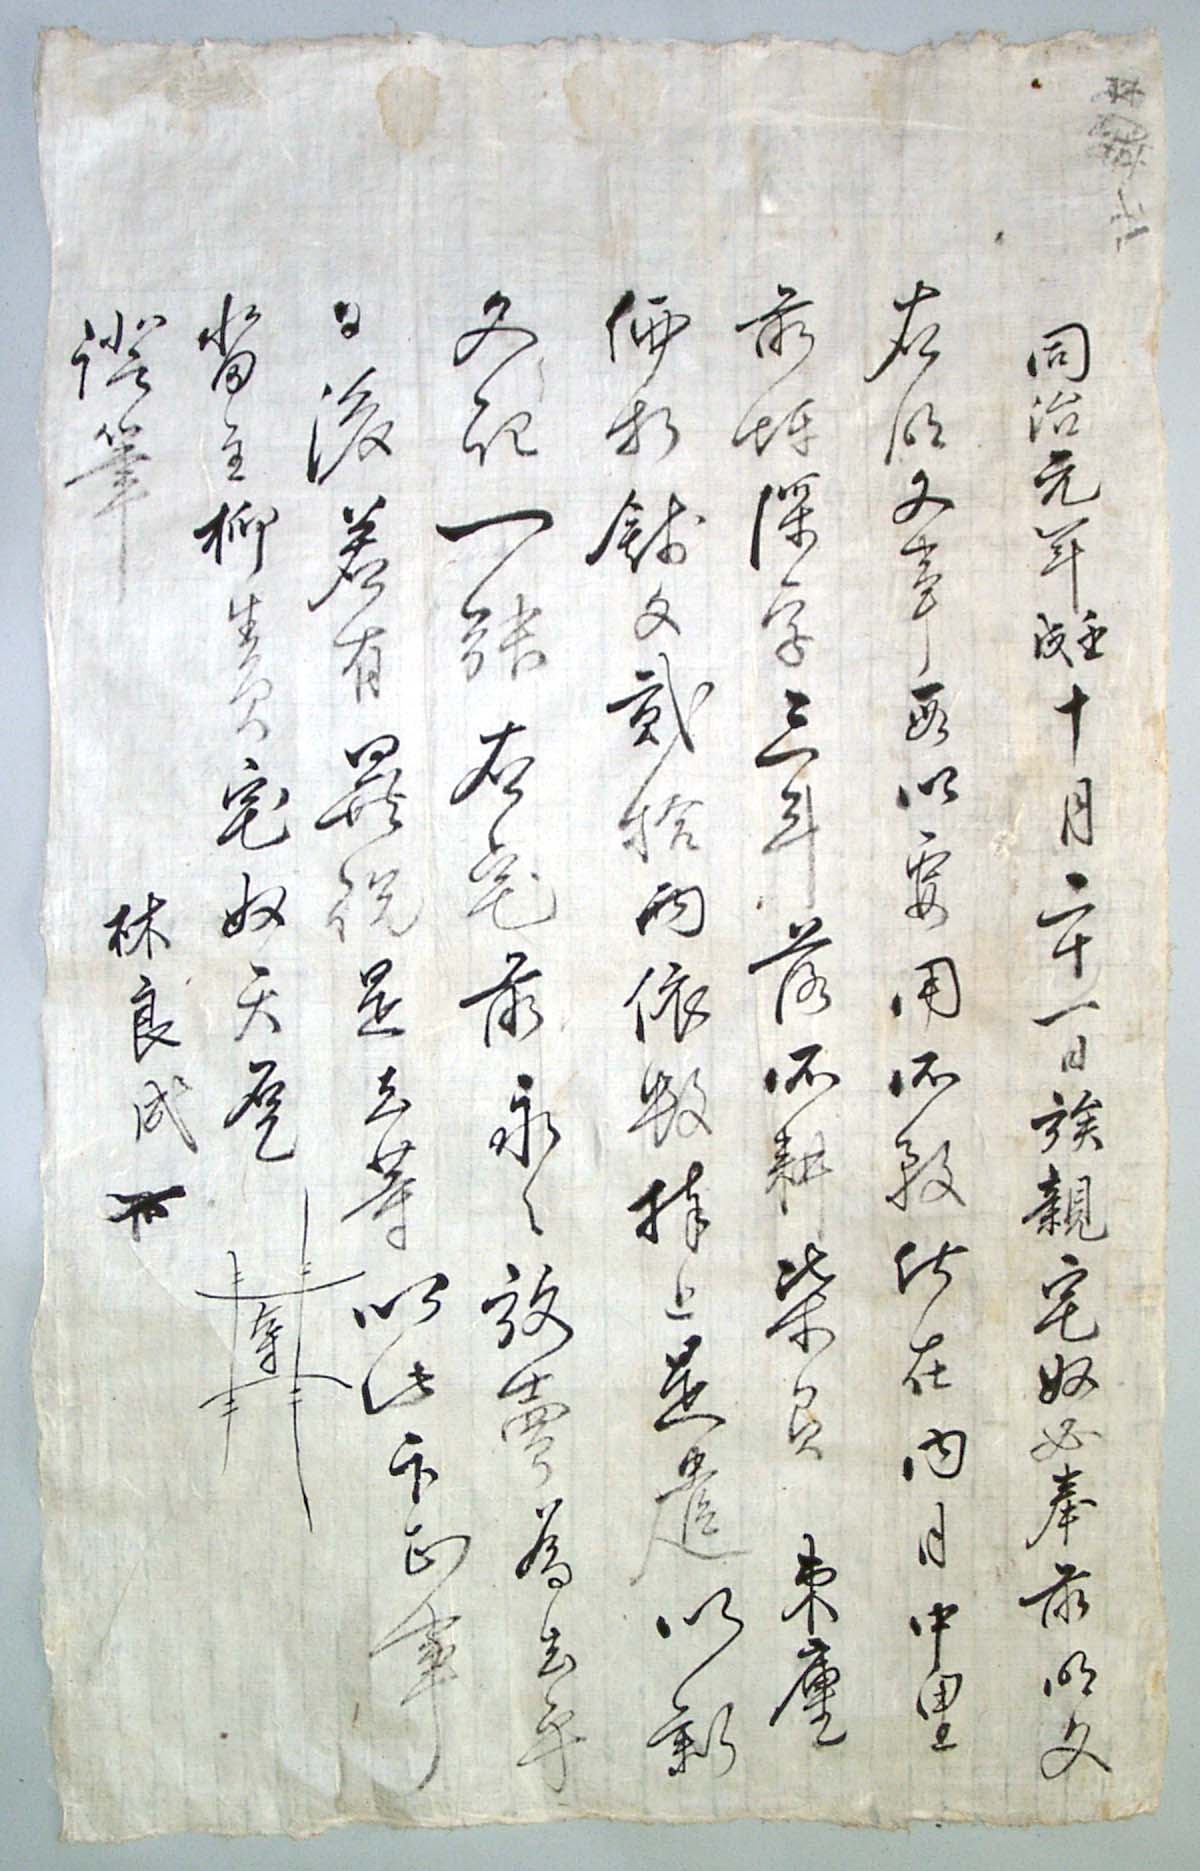 同治元年壬戌十月二十一日族親宅奴必奉前明文
右明文事段以要用所致伏在內月中里
前坪深字三斗落所耕柴負 東廛
価折錢文貳拾兩依數捧上是遣以新
文記一張右宅前永永放賣爲去乎
日後若有異說是去等以此卞正事
畓主柳生員宅奴天登
證筆 林良成